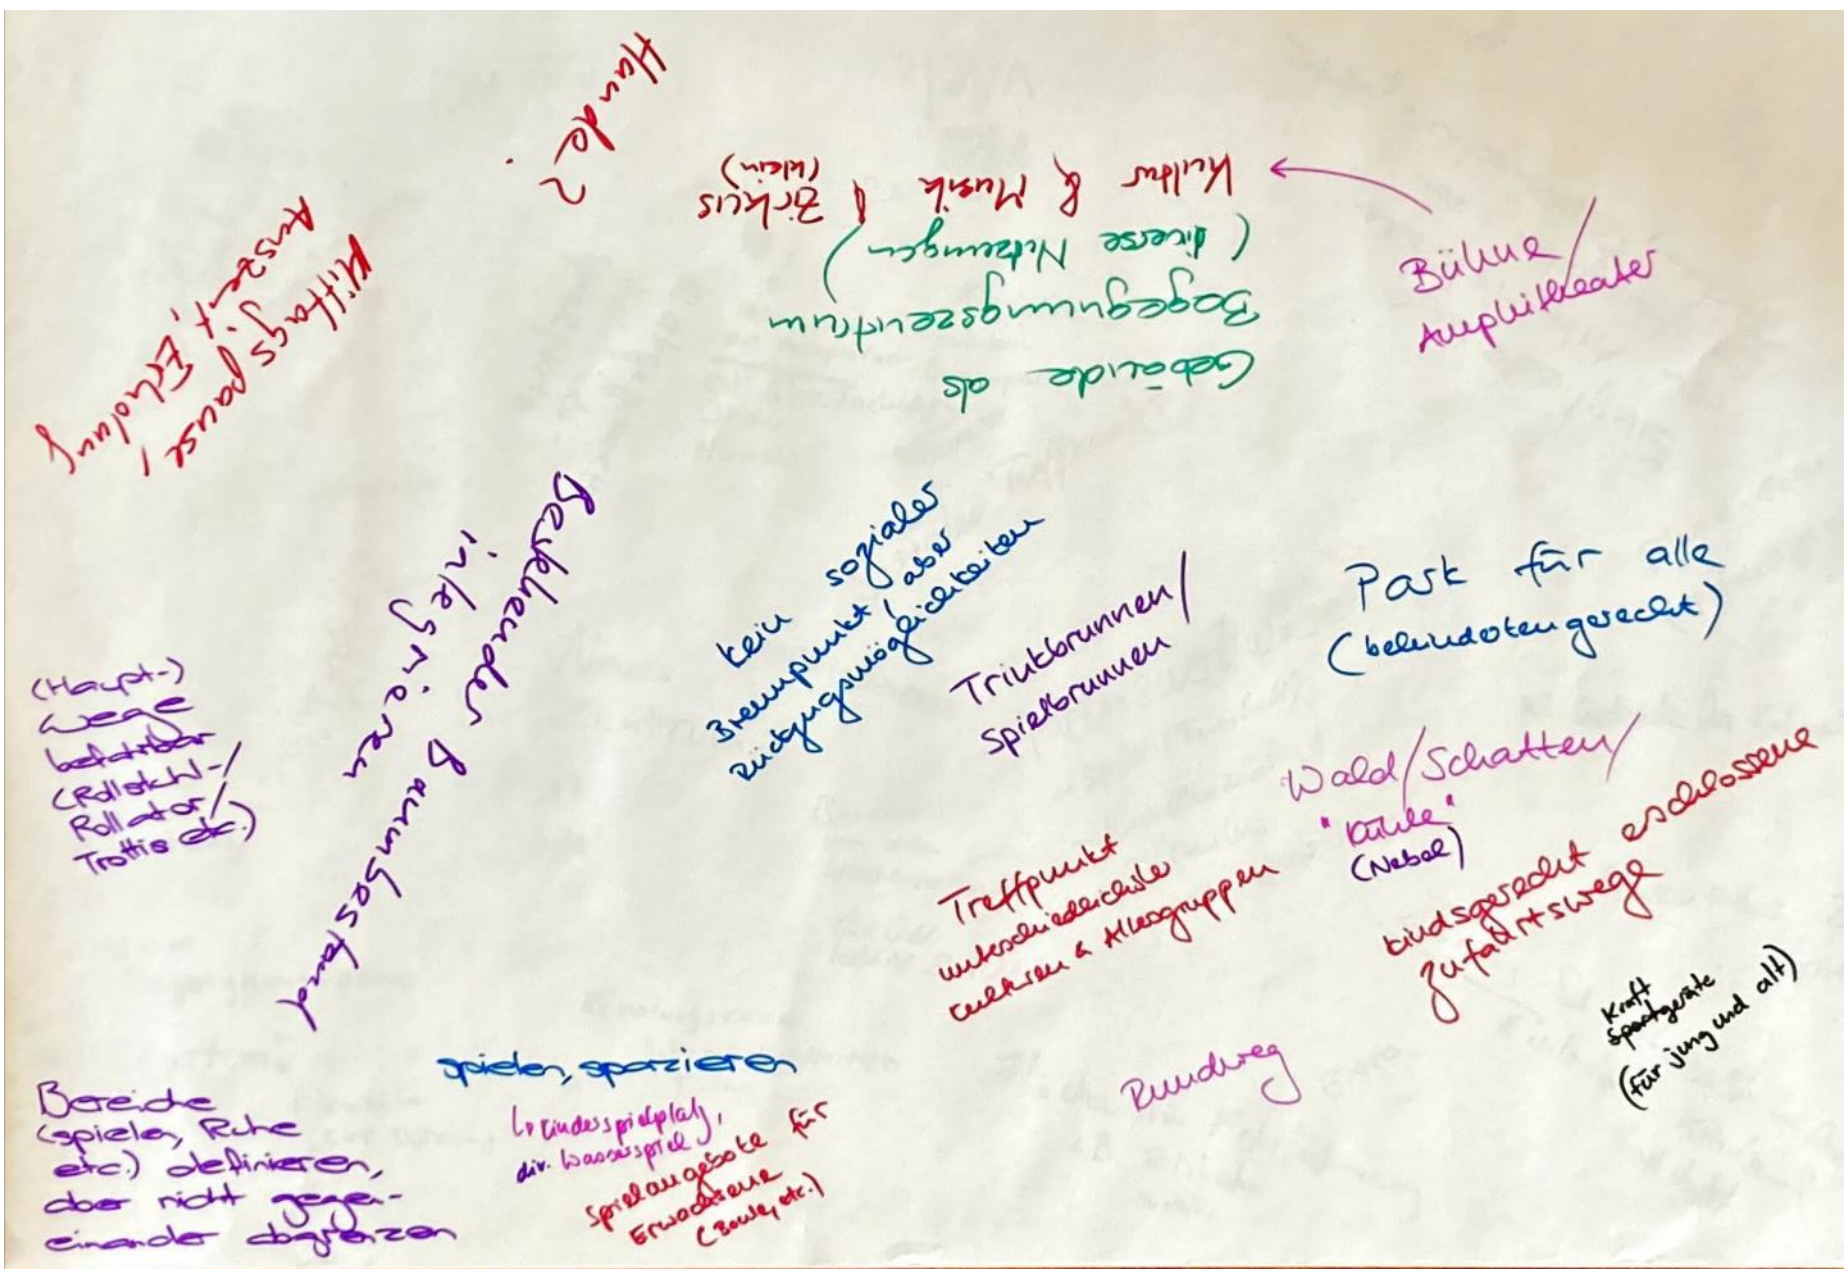 Hunde?
Mittagspause /
Auszeit, Erholung
Kultur & Musik / Zirkus
(klein)
Gebäude als
Begegnungszentrum
(diverse Nutzungen)
Bühne /
Amphitheater
Bestehender Baumbestand
integrieren
kein sozialer
Brennpunkt, aber
Rückzugsmöglichkeiten
Trinkbrunnen /
Spielbrunnen
Park für alle
(behindertengerecht)
(Haupt-)
wege
befahrbar
(Rollstuhl-/
Rollator/
Trottis etc.)
Wald/Schatten/
"Kühle"
(Nebel)
Treffpunkt
unterschiedlicher
Kulturen & Altersgruppen
kindsgerecht erschlossene
Zufahrtswege
Kraft
Sportgeräte
(für jung und alt)
Rundweg
spielen, spazieren
↳ Kinderspielplatz,
div. Wasserspiel
Spielangebote für
Erwachsene
(Boule, etc.)
Bereiche
(spielen, Ruhe
etc.) definieren,
aber nicht gegen-
einander abgrenzen